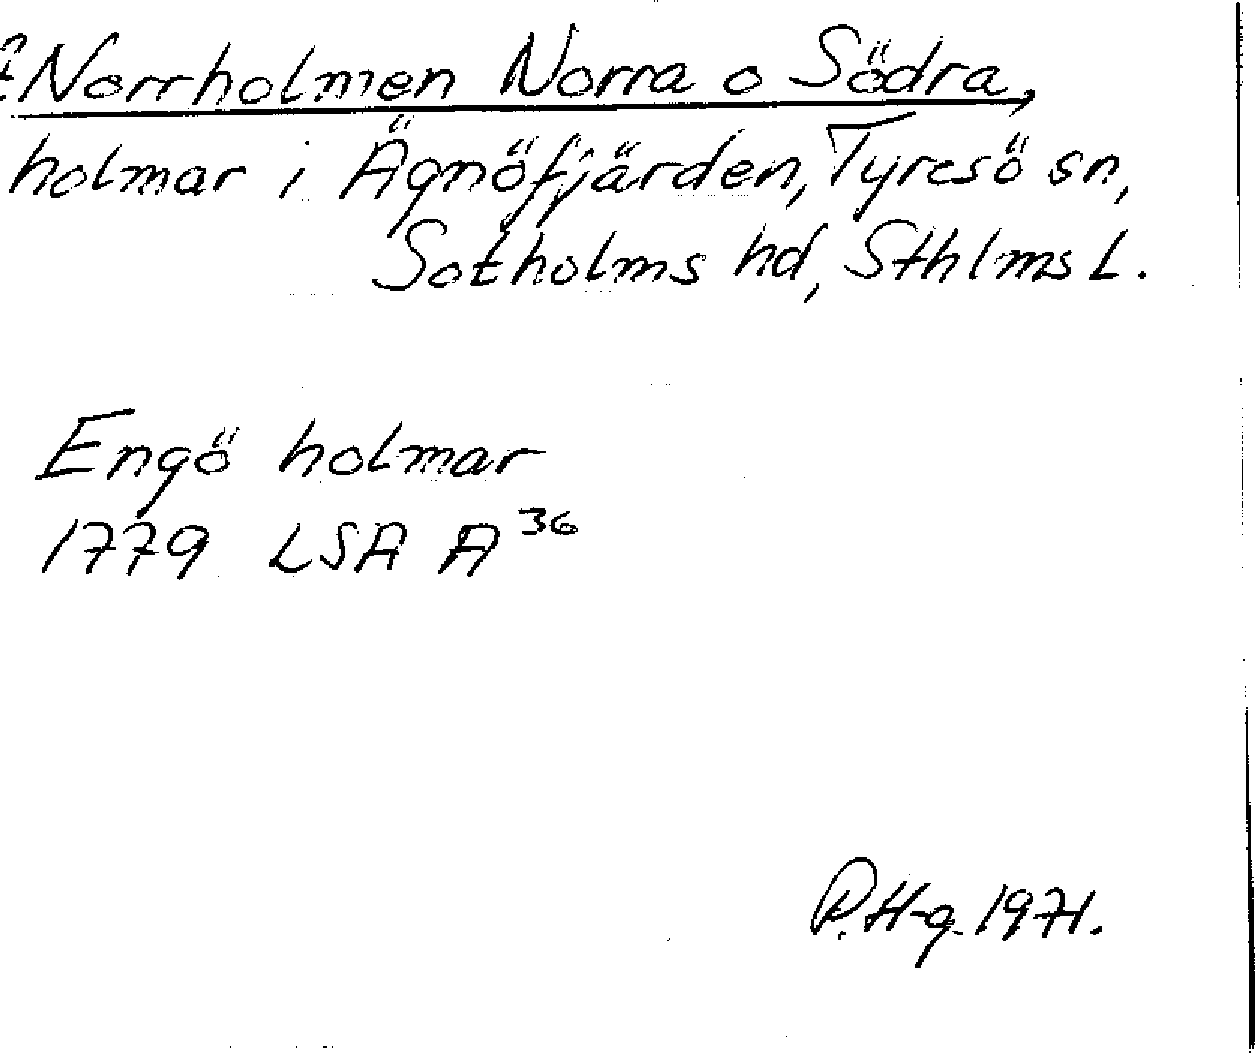 Norrholmen Norra o Södra,
holmar i Ägnöfjärden, Tyresö sn,
Sotholms hd, Sthlms L.
Engö holmar
1779 LSA A 36
P. H-g. 1971.